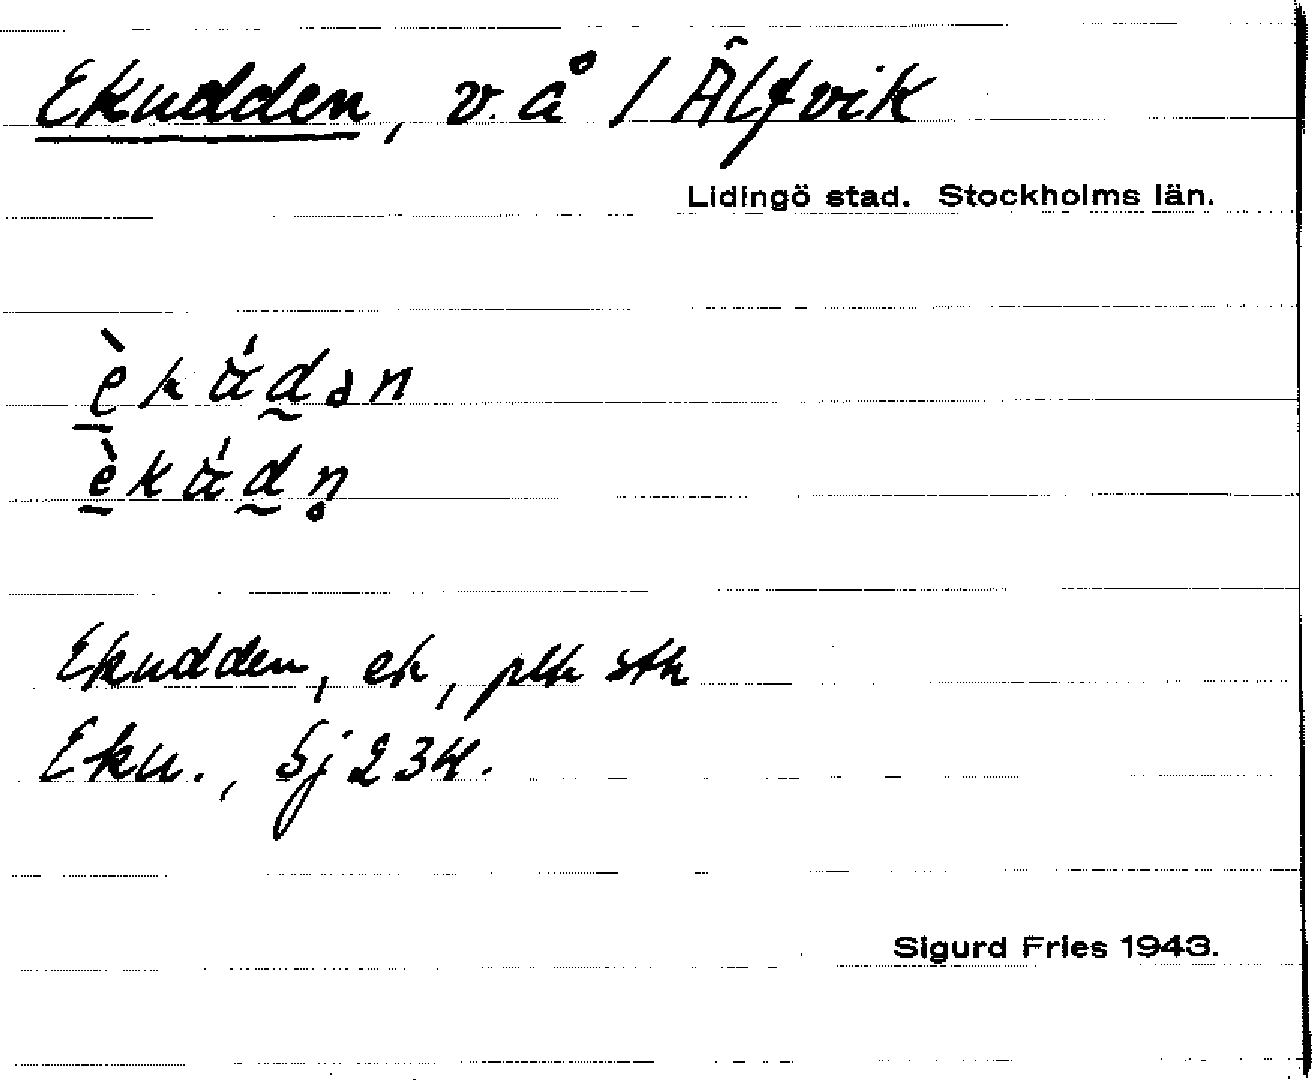 Ekudden, v. å / Älfvik
Lidingö stad. Stockholms län.
Ekudden, ek, plk stk
Eku., Sj 234.
Sigurd Fries 1943.